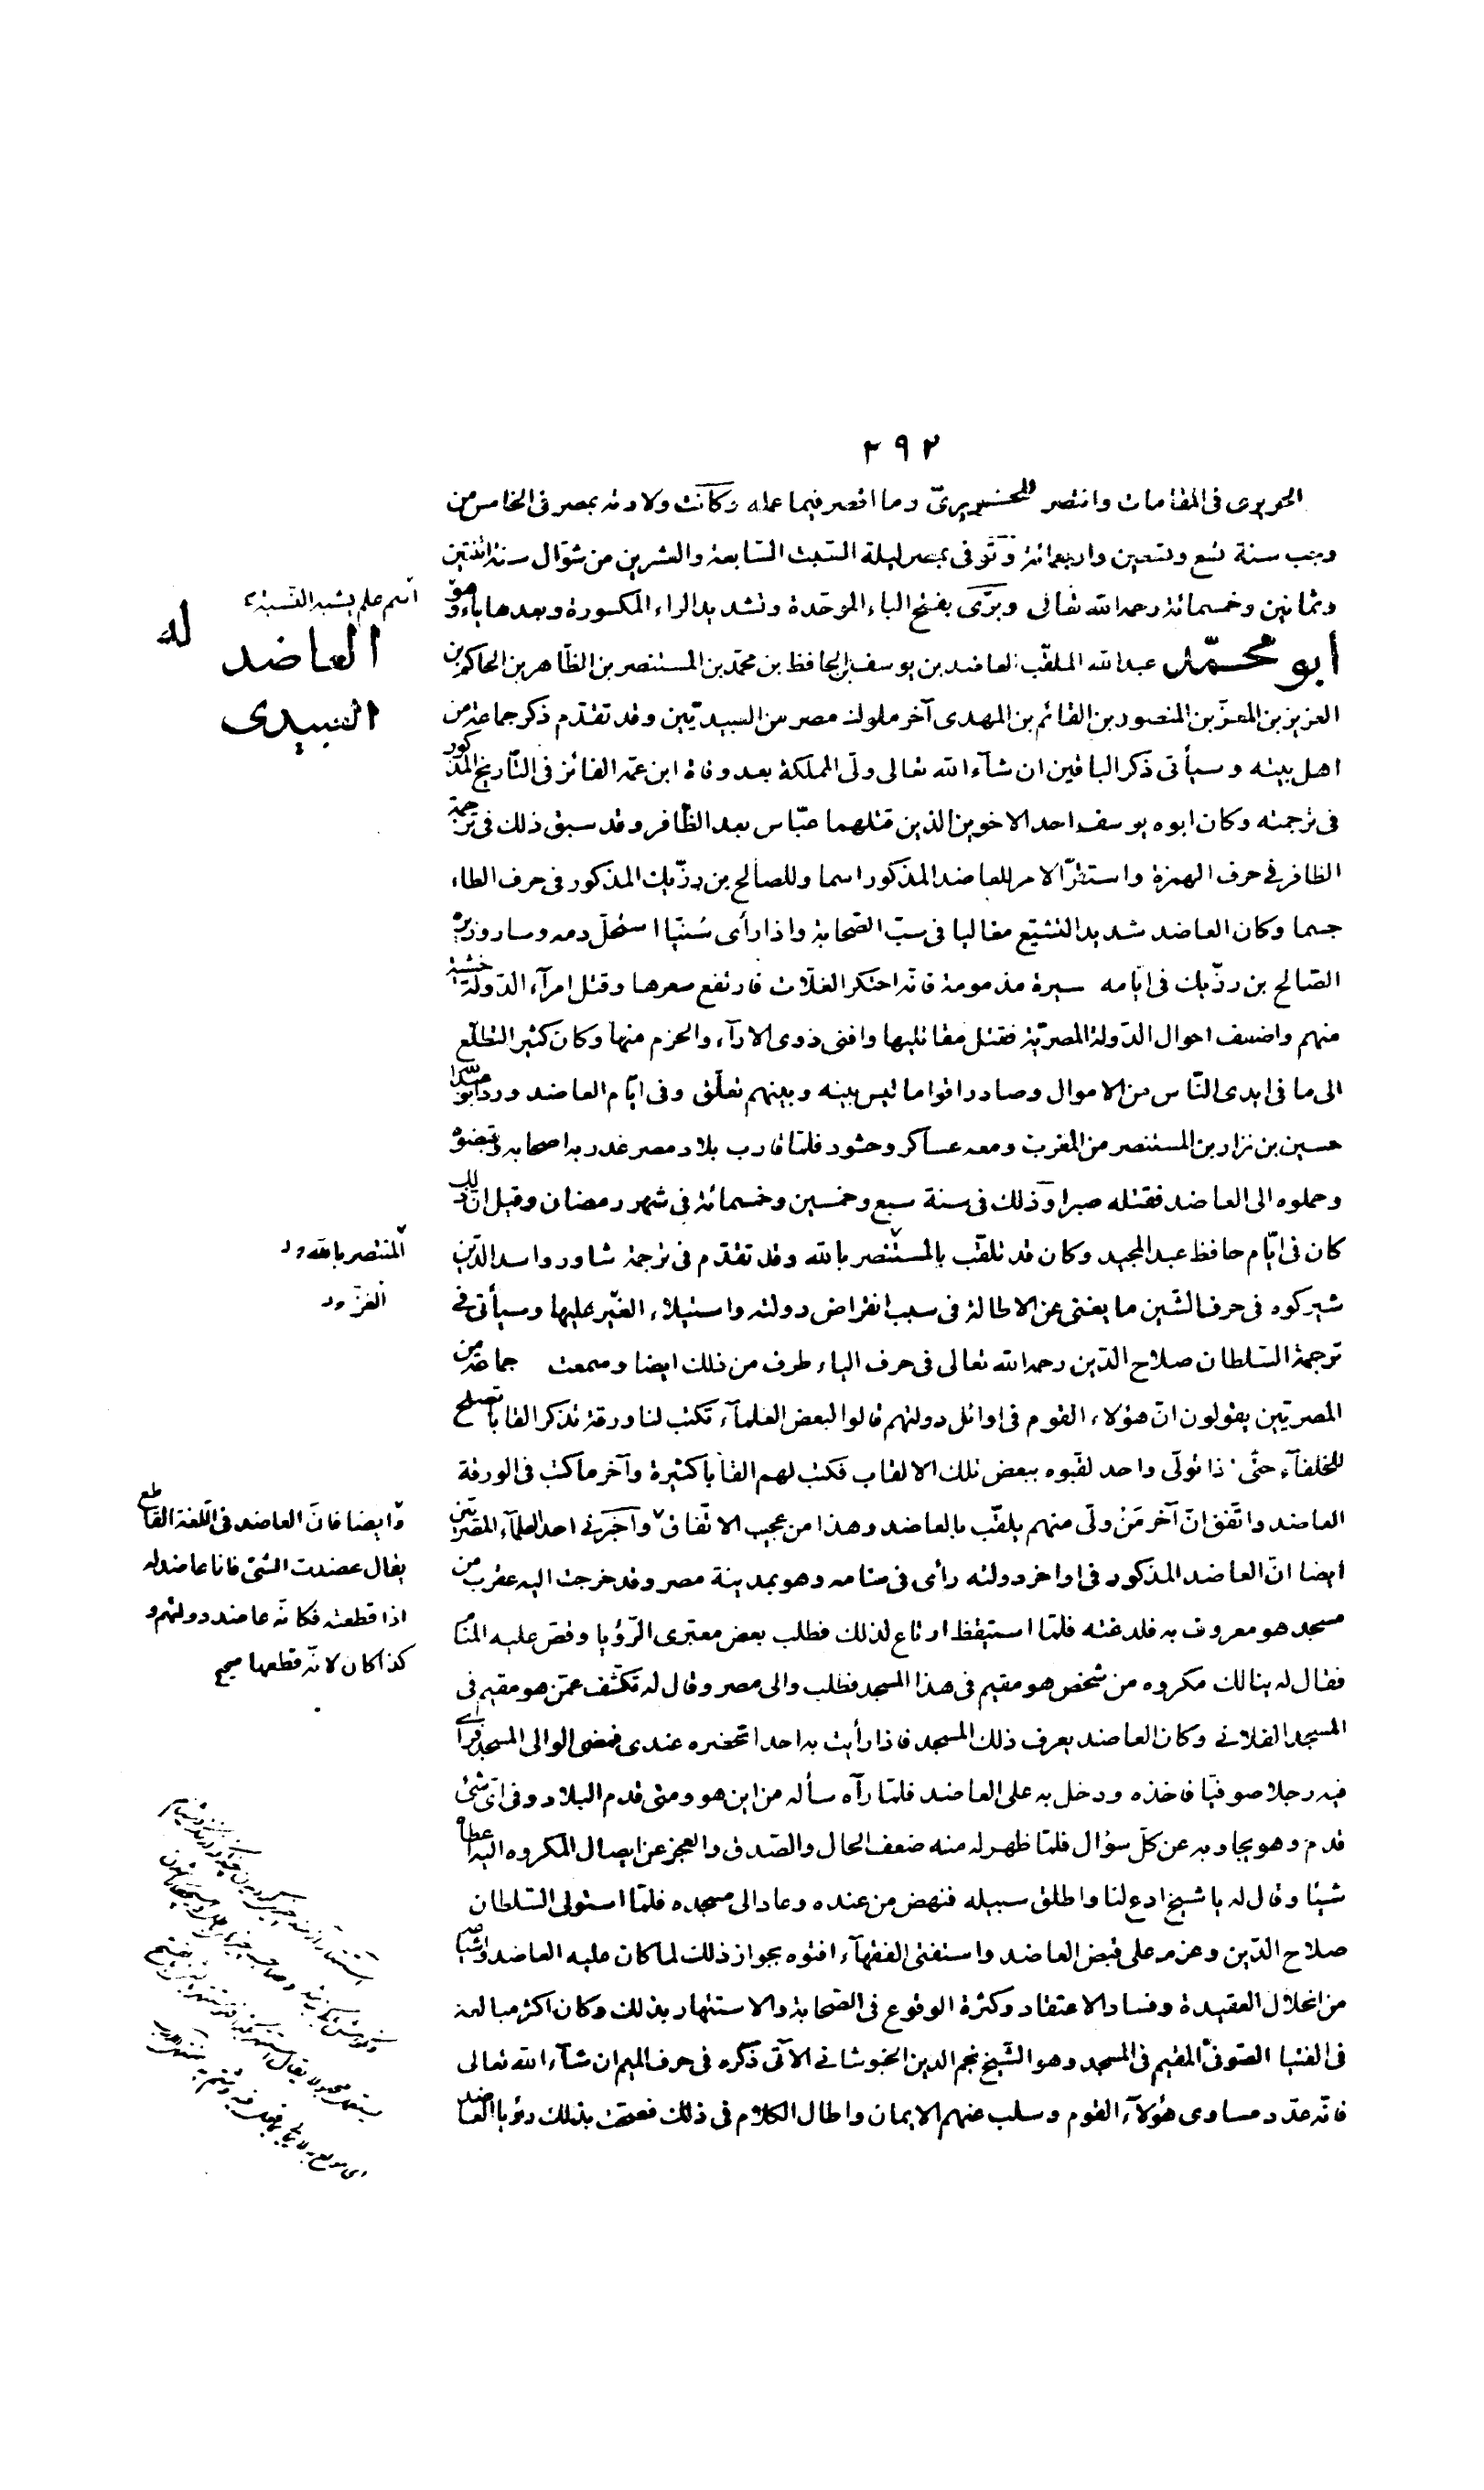 ٢٩٢
الحريرى فى المقامات وانتصر للحريرىّ وما اقصر فيما عمله وكانت ولادته بمصر فى الخامس من
رجب سنة تسع وتسعين واربعمائة وتوفى بمصر ليلة السّبت السّابعة والعشرين من شوّال سنة اثنتين
وثمانين وخمسمائة رحمه الله تعالى وبرّى بفتح الباء الموحّدة وتشديد الراء المكسورة وبعدها ياء وهو
اسم علم يشبه النّسبة
العاضد
العبيدى
أبو محمّد عبد الله الملقّب العاضد بن يوسف بن الحافظ بن محمّد بن المستنصر بن الظّاهر بن الحاكم بن
العزيز بن المعزّ بن المنصور بن القائم بن المهدى آخر ملوك مصر من العبيديّين وقد تقدّم ذكر جماعة من
اهل بيته وسيأتى ذكر الباقين ان شآء الله تعالى ولّى المملكة بعد وفاة ابن عمّه الفائز فى التّاريخ المذكور
فى ترجمته وكان ابوه يوسف احد الاخوين الذين قتلهما عبّاس بعد الظّافر وقد سبق ذلك فى ترجمة
الظافر فى حرف الهمزة واستقرّ الامر للعاضد المذكور اسما وللصالح بن رزّيك المذكور فى حرف الطاء
جسما وكان العاضد شديد التشيّع مغاليا فى سبّ الصّحابة واذا رأى سُنيّا استحلّ دمه وسار وزيره
الصّالح بن رزّيك فى ايّامه سيرة مذمومة فانّه احتكر الغلّات فارتفع سعرها وقتل امرآء الدّولة خشية
منهم واضعف احوال الدّولة المصريّة فقتل مقاتليها وافنى ذوى الارآء والحزم منها وكان كثير التطلّع
الى ما فى ايدى النّاس من الاموال وصادر اقواما ليس بينه وبينهم تعلّق وفى ايّام العاضد ورد ابو عبد الله
حسين بن نزار بن المستنصر من المغرب ومعه عساكر وحشود فلمّا قارب بلاد مصر غدر به اصحابه وقبضوه
وحملوه الى العاضد فقتله صبرا وذلك فى سنة سبع وخمسين وخمسمائة فى شهر رمضان وقيل انّ ذلك
كان فى ايّام حافظ عبد المجيد وكان قد تلقّب بالمستنصر بالله وقد تقدّم فى ترجمة شاور واسد الدّين
المنتصر بالله
شيركوه فى حرف الشّين ما يغنى عن الاطالة فى سبب انقراض دولته واستيلاء الغيّر عليها وسيأتى فى
الغزّ
ترجمة السّلطان صلاح الدّين رحمه الله تعالى فى حرف الياء طرف من ذلك ايضا وسمعت جماعة من
المصريّين يقولون انّ هؤلاء القوم فى اوائل دولتهم قالوا لبعض العلمآء تكتب لنا ورقة تذكر القابا تصلح
للخلفآء حتّى اذا تولّى واحد لقّبوه ببعض تلك الالقاب فكتب لهم القابا كثيرة وآخر ما كتب فى الورقة
العاضد واتّفق انّ آخر مَنْ ولّى منهم يلقّب بالعاضد وهذا من عجيب الاتّفاق وآخبرنى احد العلمآء المصريّين
وايضا فانّ العاضد فى اللّغة القاطع
يقال عضدت الشئ فانا عاضد له
اذا قطعته فكانّه عاضد دولتهم و
كذا كان لانّه قطعها صح
ايضا انّ العاضد المذكور فى اواخر دولته رأى فى منامه وهو بمدينة مصر وقد خرجت اليه عقرب من
مسجد هو معروف به فلدغته فلمّا استيقظ ارتاع لذلك فطلب بعض معبّرى الرّؤيا وقصّ عليه المنام
فقال له ينالك مكروه من شخص هو مقيم فى هذا المسجد فطلب والى مصر وقال له تكشّف عمّن هو مقيم فى
المسجد الفلانى وكان العاضد يعرف ذلك المسجد فاذا رأيت به احدا تحضره عندى فمضى الوالى المسجد فرأى
فيه رجلا صوفيّا فاخذه ودخل به على العاضد فلمّا رآه سأله من اين هو ومتى قدم البلاد وفى اىّ شئ
قدم وهو يجاوبه عن كلّ سؤال فلمّا ظهر له منه ضعف الحال والصّدق والعجز عن ايصال المكروه اليه اعطاه
شيئا وقال له يا شيخ ادع لنا واطلق سبيله فنهض من عنده وعاد الى مسجده فلمّا استولى السّلطان
صلاح الدّين وعزم على قبض العاضد واستفتى الفقهآء افتوه بجواز ذلك لما كان عليه العاضد واشياعه
من انحلال العقيدة وفساد الاعتقاد وكثرة الوقوع فى الصّحابة والاستهار بذلك وكان اكثرهم مبالغة
فى الفتيا الصّوفىّ المقيم فى المسجد وهو الشّيخ نجم الدين الخبوشانى الآتى ذكره فى حرف الميم ان شآء الله تعالى
فانّه عدّد مساوى هؤلآء القوم وسلب عنهم الايمان واطال الكلام فى ذلك فصحّت بذلك رؤيا العاضد